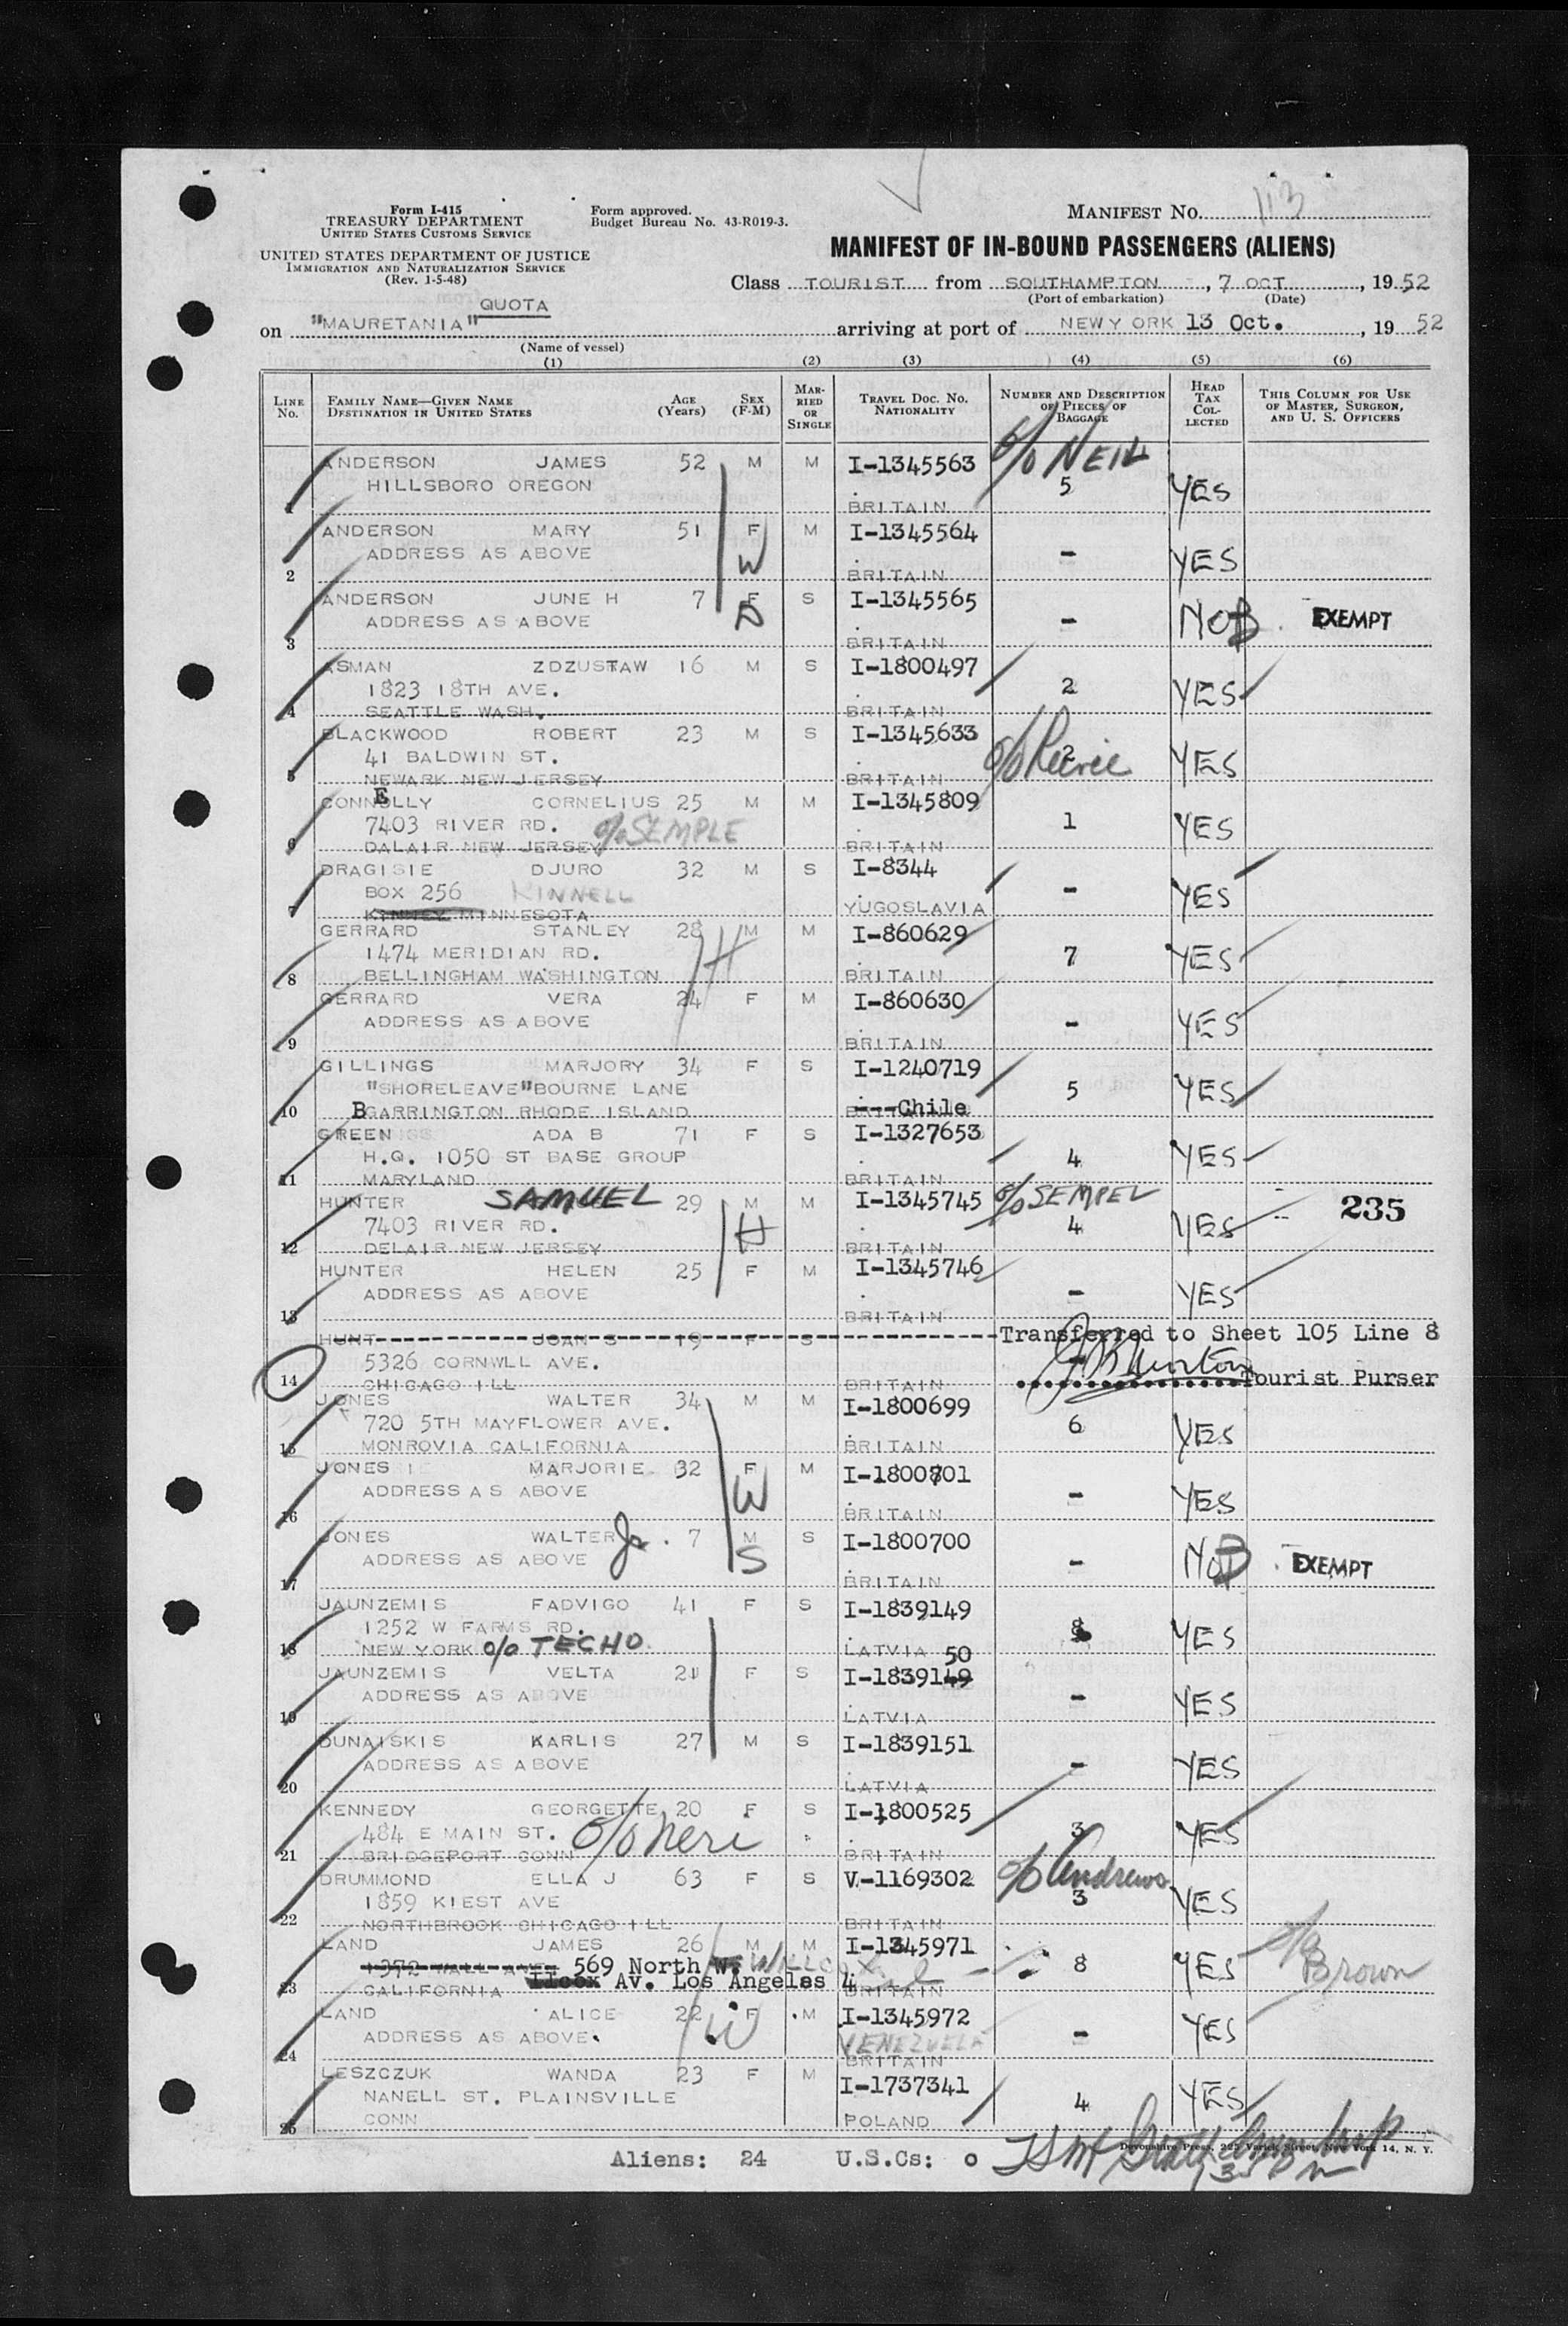 Form I-415
TREASURY DEPARTMENT
UNITED STATES CUSTOMS SERVICE
UNITED STATES DEPARTMENT OF JUSTICE
IMMIGRATION AND NATURALIZATION SERVICE
(Rev. 1-5-48)
Form approved.
Budget Bureau No. 43-R019-3.
MANIFEST NO. 113
MANIFEST OF IN-BOUND PASSENGERS (ALIENS)
Class TOURIST from SOUTHAMPTON, 7 OCT, 1952
(Port of embarkation) (Date)
QUOTA
on "MAURETANIA" arriving at port of NEW YORK 13 Oct., 1952
(Name of vessel)
(1) (2) (3) (4) (5) (6)
LINE No. FAMILY NAME—GIVEN NAME DESTINATION IN UNITED STATES AGE (Years) SEX (F-M) MARRIED OR SINGLE TRAVEL DOC. NO. NATIONALITY NUMBER AND DESCRIPTION OF PIECES OF BAGGAGE HEAD TAX COLLECTED THIS COLUMN FOR USE OF MASTER, SURGEON, AND U. S. OFFICERS
ANDERSON JAMES 52 M M I-1345563 c/o NEIL
HILLSBORO OREGON 5 YES
1 BRITAIN
ANDERSON MARY 51 F M I-1345564
ADDRESS AS ABOVE W - YES
2 BRITAIN
ANDERSON JUNE H 7 F S I-1345565
ADDRESS AS ABOVE D - NO EXEMPT
3 BRITAIN
ASMAN ZDZUSTAW 16 M S I-1800497
1823 18TH AVE. 2 YES
4 SEATTLE WASH. BRITAIN
BLACKWOOD ROBERT 23 M S I-1345633
41 BALDWIN ST. c/o 2 YES
5 NEWARK NEW JERSEY BRITAIN
CONNELLY CORNELIUS 25 M M I-1345809
7403 RIVER RD. c/o SEMPLE 1 YES
6 DALAIR NEW JERSEY BRITAIN
DRAGISIE DJURO 32 M S I-8344
BOX 256 KINNELL - YES
7 KINNEY MINNESOTA YUGOSLAVIA
GERRARD STANLEY 28 M M I-860629
1474 MERIDIAN RD. H 7 YES
8 BELLINGHAM WASHINGTON BRITAIN
GERRARD VERA 24 F M I-860630
ADDRESS AS ABOVE - YES
9 BRITAIN
GILLINGS MARJORY 34 F S I-1240719
"SHORELEAVE" BOURNE LANE 5 YES
10 BGARRINGTON RHODE ISLAND BRITAIN Chile
GREEN ADA B 71 F S I-1327653
H.Q. 1050 ST BASE GROUP 4 YES
11 MARYLAND BRITAIN
HUNTER SAMUEL 29 M M I-1345745 c/o SEMPEL 235
7403 RIVER RD. H 4 YES
12 DELAIR NEW JERSEY BRITAIN
HUNTER HELEN 25 F M I-1345746
ADDRESS AS ABOVE - YES
13 BRITAIN
HUNT JOAN S 19 F S Transferred to Sheet 105 Line 8
5326 CORNWLL AVE. -
14 CHICAGO ILL BRITAIN Tourist Purser
JONES WALTER 34 M M I-1800699
720 5TH MAYFLOWER AVE. 6 YES
15 MONROVIA CALIFORNIA BRITAIN
JONES MARJORIE 32 F M I-1800701
ADDRESS AS ABOVE W - YES
16 BRITAIN
JONES WALTER Jr. 7 M S I-1800700
ADDRESS AS ABOVE S - NO EXEMPT
17 BRITAIN
JAUNZEMIS FADVIGO 41 F S I-1839149
1252 W FARMS RD. 8 YES
18 NEW YORK c/o TECHO LATVIA
JAUNZEMIS VELTA 21 F S I-183914950
ADDRESS AS ABOVE - YES
19 LATVIA
DUNAISKIS KARLIS 27 M S I-1839151
ADDRESS AS ABOVE - YES
20 LATVIA
KENNEDY GEORGETTE 20 F S I-1800525
484 E MAIN ST. c/o Neri 3 YES
21 BRIDGEPORT CONN BRITAIN
DRUMMOND ELLA J 63 F S V-1169302 c/o Andrews
1859 KIEST AVE 3 YES
22 NORTHBROOK CHICAGO ILL BRITAIN
LAND JAMES 26 M M I-1345971
1372 WALL AVE 569 North W. WILLCOX 8 YES c/o Brown
23 CALIFORNIA llcox Av. Los Angeles 4 BRITAIN
LAND ALICE 22 F M I-1345972
ADDRESS AS ABOVE. W VENEZUELA - YES
24 BRITAIN
LESZCZUK WANDA 23 F M I-1737341
NANELL ST. PLAINSVILLE 4 YES
25 CONN POLAND
Devonshire Press, 225 Varick Street, New York 14, N. Y.
Aliens: 24 U.S.Cs: 0